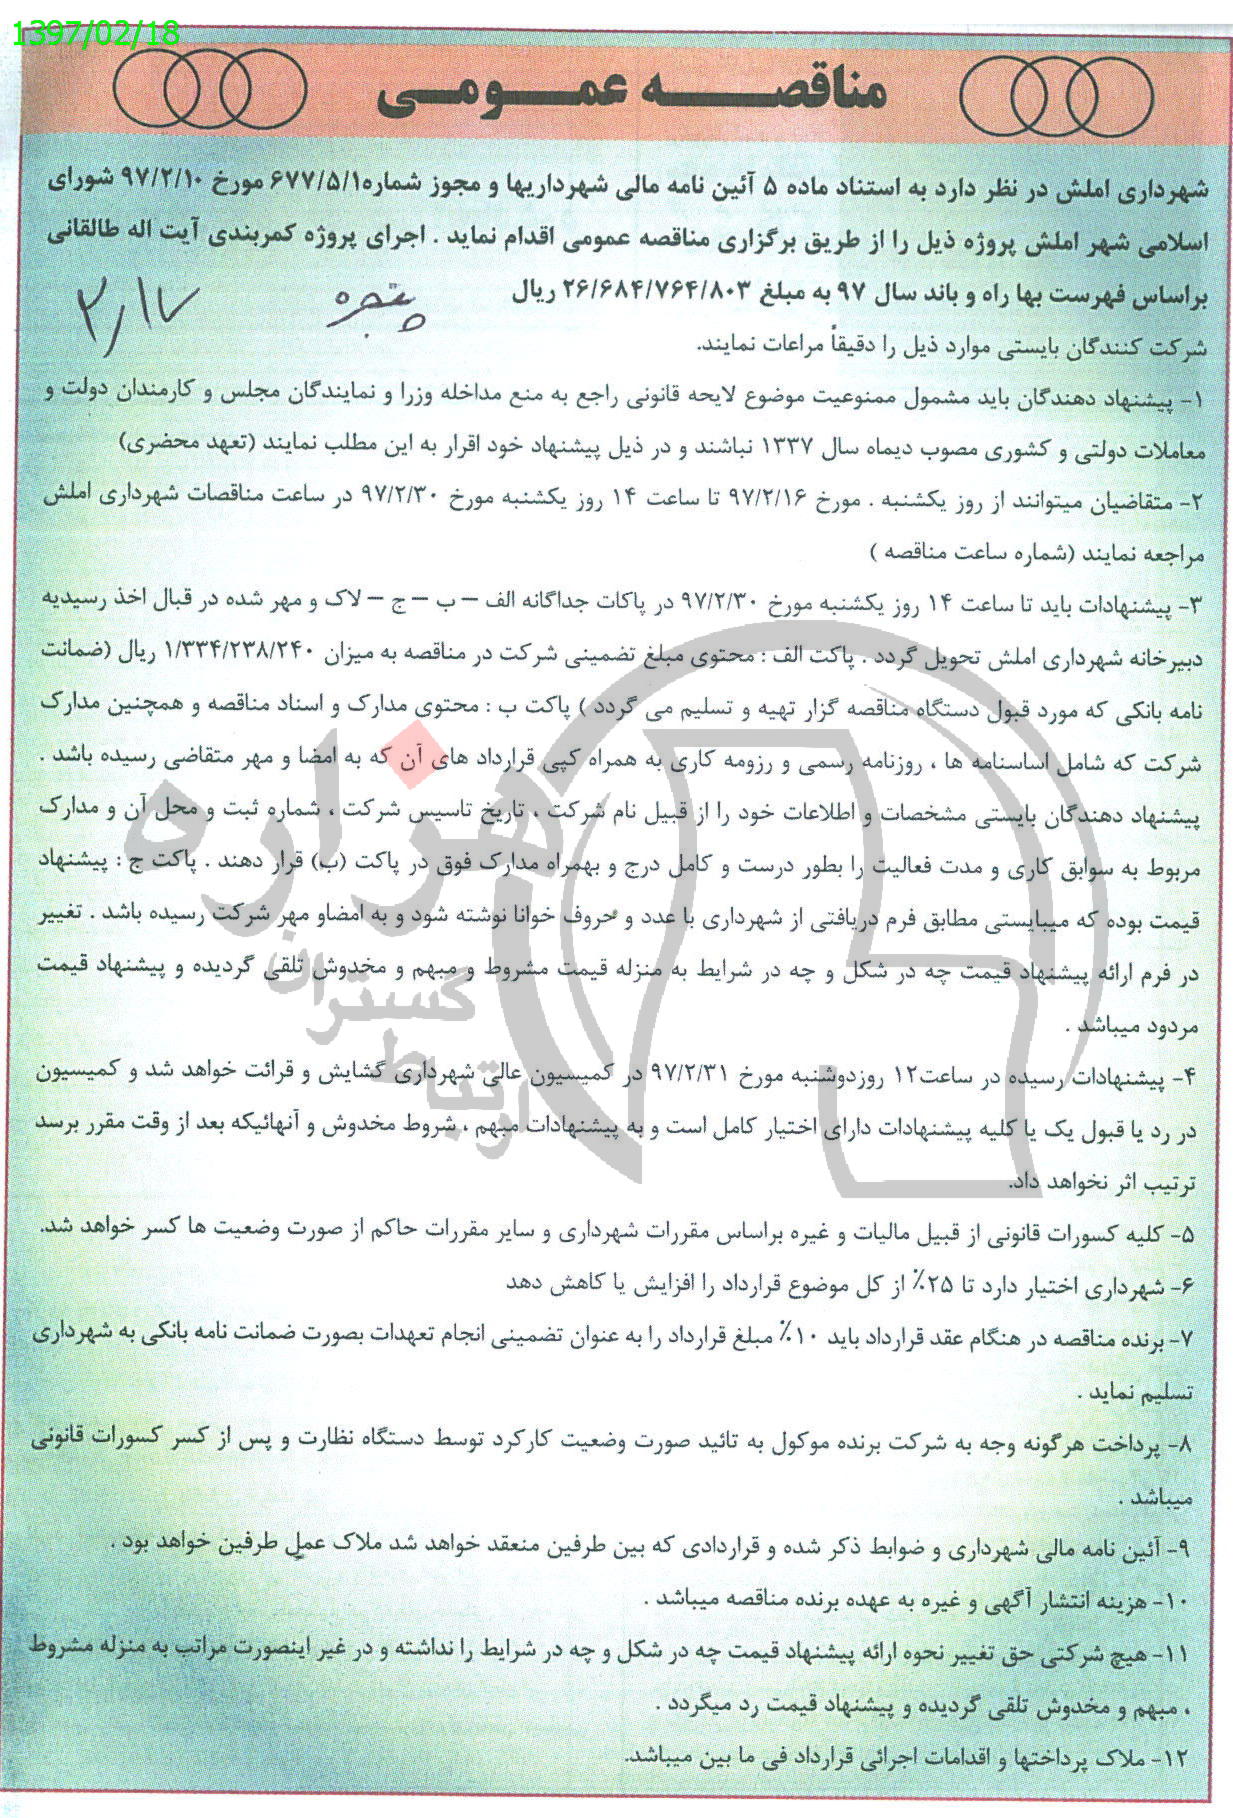 1397/02/18
مناقصه عمومی
شهرداری املش در نظر دارد به استناد ماده ۵ آئین نامه مالی شهرداریها و مجوز شماره۶۷۷/۵/۱ مورخ ۹۷/۲/۱۰ شورای
اسلامی شهر املش پروژه ذیل را از طریق برگزاری مناقصه عمومی اقدام نماید . اجرای پروژه کمربندی آیت اله طالقانی
براساس فهرست بها راه و باند سال ۹۷ به مبلغ ۲۶/۶۸۴/۷۶۴/۸۰۳ ریال
پنجره
۲٫۱۷
شرکت کنندگان بایستی موارد ذیل را دقیقاً مراعات نمایند.
۱- پیشنهاد دهندگان باید مشمول ممنوعیت موضوع لایحه قانونی راجع به منع مداخله وزرا و نمایندگان مجلس و کارمندان دولت و
معاملات دولتی و کشوری مصوب دیماه سال ۱۳۳۷ نباشند و در ذیل پیشنهاد خود اقرار به این مطلب نمایند (تعهد محضری)
۲- متقاضیان میتوانند از روز یکشنبه . مورخ ۹۷/۲/۱۶ تا ساعت ۱۴ روز یکشنبه مورخ ۹۷/۲/۳۰ در ساعت مناقصات شهرداری املش
مراجعه نمایند (شماره ساعت مناقصه )
۳- پیشنهادات باید تا ساعت ۱۴ روز یکشنبه مورخ ۹۷/۲/۳۰ در پاکات جداگانه الف – ب – ج – لاک و مهر شده در قبال اخذ رسیدیه
دبیرخانه شهرداری املش تحویل گردد . پاکت الف : محتوی مبلغ تضمینی شرکت در مناقصه به میزان ۱/۳۳۴/۲۳۸/۲۴۰ ریال (ضمانت
نامه بانکی که مورد قبول دستگاه مناقصه گزار تهیه و تسلیم می گردد ) پاکت ب : محتوی مدارک و اسناد مناقصه و همچنین مدارک
شرکت که شامل اساسنامه ها ، روزنامه رسمی و رزومه کاری به همراه کپی قرارداد های آن که به امضا و مهر متقاضی رسیده باشد .
پیشنهاد دهندگان بایستی مشخصات و اطلاعات خود را از قبیل نام شرکت ، تاریخ تاسیس شرکت ، شماره ثبت و محل آن و مدارک
مربوط به سوابق کاری و مدت فعالیت را بطور درست و کامل درج و بهمراه مدارک فوق در پاکت (ب) قرار دهند . پاکت ج : پیشنهاد
قیمت بوده که میبایستی مطابق فرم دریافتی از شهرداری با عدد و حروف خوانا نوشته شود و به امضاو مهر شرکت رسیده باشد . تغییر
در فرم ارائه پیشنهاد قیمت چه در شکل و چه در شرایط به منزله قیمت مشروط و مبهم و مخدوش تلقی گردیده و پیشنهاد قیمت
مردود میباشد .
۴- پیشنهادات رسیده در ساعت۱۲ روزدوشنبه مورخ ۹۷/۲/۳۱ در کمیسیون عالی شهرداری گشایش و قرائت خواهد شد و کمیسیون
در رد یا قبول یک یا کلیه پیشنهادات دارای اختیار کامل است و به پیشنهادات مبهم ، شروط مخدوش و آنهائیکه بعد از وقت مقرر برسد
ترتیب اثر نخواهد داد.
۵- کلیه کسورات قانونی از قبیل مالیات و غیره براساس مقررات شهرداری و سایر مقررات حاکم از صورت وضعیت ها کسر خواهد شد.
۶- شهرداری اختیار دارد تا ۲۵٪ از کل موضوع قرارداد را افزایش یا کاهش دهد
۷- برنده مناقصه در هنگام عقد قرارداد باید ۱۰٪ مبلغ قرارداد را به عنوان تضمینی انجام تعهدات بصورت ضمانت نامه بانکی به شهرداری
تسلیم نماید .
۸- پرداخت هرگونه وجه به شرکت برنده موکول به تائید صورت وضعیت کارکرد توسط دستگاه نظارت و پس از کسر کسورات قانونی
میباشد .
۹- آئین نامه مالی شهرداری و ضوابط ذکر شده و قراردادی که بین طرفین منعقد خواهد شد ملاک عمل طرفین خواهد بود .
۱۰- هزینه انتشار آگهی و غیره به عهده برنده مناقصه میباشد .
۱۱- هیچ شرکتی حق تغییر نحوه ارائه پیشنهاد قیمت چه در شکل و چه در شرایط را نداشته و در غیر اینصورت مراتب به منزله مشروط
، مبهم و مخدوش تلقی گردیده و پیشنهاد قیمت رد میگردد .
۱۲- ملاک پرداختها و اقدامات اجرائی قرارداد فی ما بین میباشد.
هزاره
گستران
ارتباط